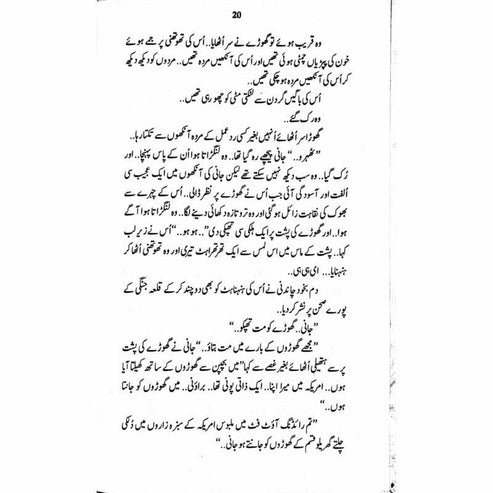 20
وہ قریب ہوئے تو گھوڑے نے سر اُٹھایا.. اُس کی تھوتھنی پر جمے ہوئے
خون کی پپڑیاں چمٹی ہوئی تھیں اور اُس کی آنکھیں مردہ تھیں.. مردوں کو دیکھ دیکھ
کر اُس کی آنکھیں مردہ ہو چکی تھیں..
اُس کی باگیں گردن سے لٹکتی مٹی کو چھو رہی تھیں..
وہ رک گئے..
گھوڑا سر اُٹھائے اُنہیں بغیر کسی ردِ عمل کے مردہ آنکھوں سے تکتا رہا..
”ٹھہرو“.. جانی پیچھے رہ گیا تھا.. وہ لنگڑاتا ہوا اُن کے پاس پہنچا.. اور
رُک گیا.. وہ سب دیکھ نہیں سکتے تھے لیکن جانی کی آنکھوں میں ایک عجیب سی
اُلفت اور آسودگی آئی جب اُس نے گھوڑے پر نظر ڈالی.. اُس کے چہرے سے
بھوک کی نقاہت زائل ہو گئی اور وہ تروتازہ دکھائی دینے لگا.. وہ لنگڑاتا ہوا آگے
ہوا.. اور گھوڑے کی پشت پر ایک ہلکی سی تھپکی دی”.. ہو ہو..“ اُس نے زیرِ لب
کہا.. پشت کے ماس میں اس لمس سے ایک تھرتھراہٹ تیری اور وہ تھوتھنی اُٹھا کر
ہنہنایا... ای ہی ہی..
دم بخود چاندنی نے اُس کی ہنہناہٹ کو بھی دو چند کر کے قلعہ جنگی کے
پورے صحن پر نشر کر دیا..
”جانی.. گھوڑے کو مت تھپکو..“
”مجھے گھوڑوں کے بارے میں مت بتاؤ..“ جانی نے گھوڑے کی پشت
پر سے ہتھیلی اُٹھائے بغیر غصے سے کہا ”میں بچپن سے گھوڑوں کے ساتھ کھیلتا آیا
ہوں.. امریکہ میں میرا اپنا.. ایک ذاتی پونی تھا.. براؤنی.. میں گھوڑوں کو جانتا
ہوں..“
”تم رائڈنگ آؤٹ فٹ میں ملبوس امریکہ کے سبزہ زاروں میں دُلکی
چلتے گھریلو قسم کے گھوڑوں کو جانتے ہو جانی..“